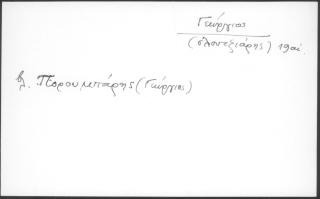 Γεώργιος
(σλουτζιάρης) 19αι.
βλ. Πορουμπάρης (Γεώργιος)